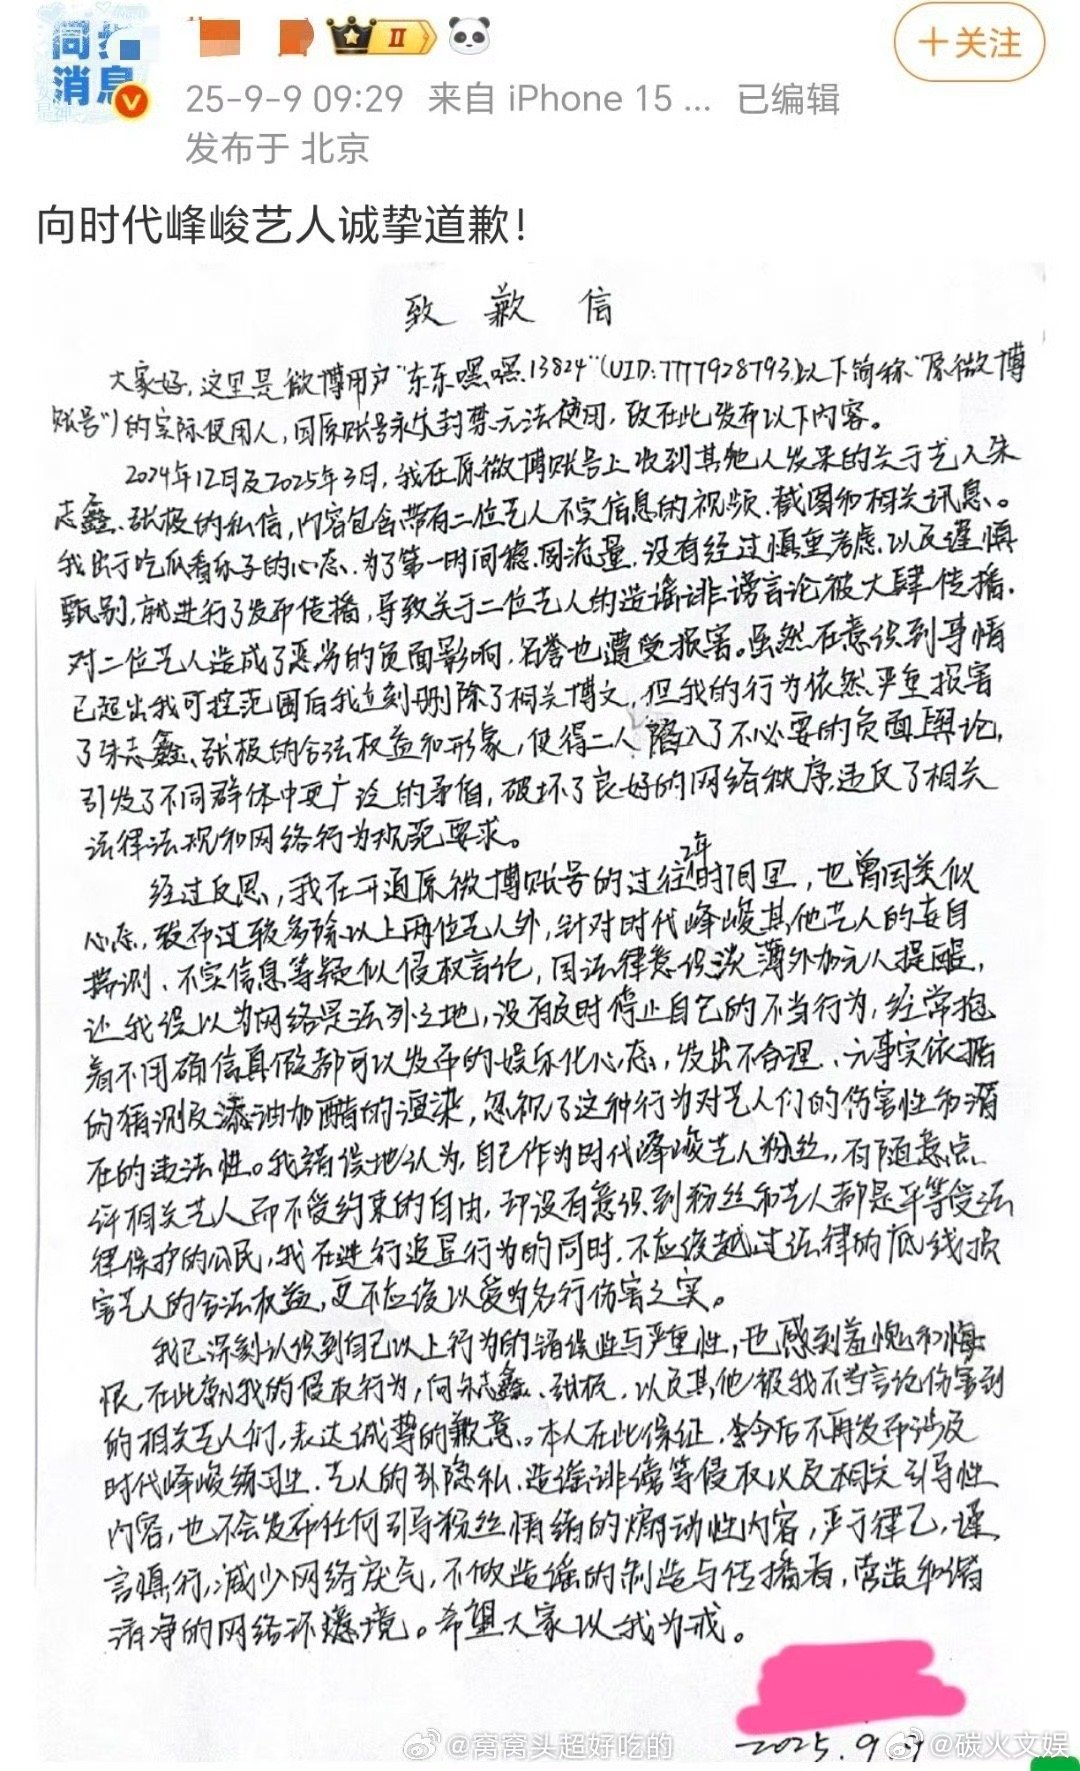 消息
II
+关注
25-9-9 09:29 来自 iPhone 15 ... 已编辑
发布于 北京
向时代峰峻艺人诚挚道歉!
致歉信
大家好,这里是微博用户"东东嘿嘿13824"(UID:777928793,以下简称"原微博
账号")的实际使用人,因原账号永久封禁无法使用,故在此发布以下内容。
2024年12月及2025年3月,我在原微博账号上收到其他人发来的关于艺人朱
志鑫、张极的私信,内容包含带有二位艺人不实信息的视频、截图和相关讯息。
我出于吃瓜看乐子的心态、为了第一时间稳固流量,没有经过慎重考虑以及谨慎
甄别,就进行了发布传播,导致关于二位艺人的造谣诽谤言论被大肆传播,
对二位艺人造成了恶劣的负面影响,名誉也遭受损害。虽然在意识到事情
已超出我可控范围后我立刻删除了相关博文,但我的行为依然严重损害
了朱志鑫、张极的合法权益和形象,使得二人陷入了不必要的负面舆论,
引发了不同群体中更广泛的矛盾,破坏了良好的网络秩序,违反了相关
法律法规和网络行为规范要求。
经过反思,我在开通原微博账号的过往2年时间里,也曾因类似
心态,发布过较多除以上两位艺人外,针对时代峰峻其他艺人的妄自
揣测、不实信息等疑似侵权言论,因法律意识淡薄外加无人提醒,
让我误以为网络是法外之地,没有及时停止自己的不当行为,经常抱
着不用确信真假都可以发布的娱乐化心态,发出不合理、无事实依据
的猜测及添油加醋的渲染,忽视了这种行为对艺人们的伤害性和潜
在的违法性。我错误地认为,自己作为时代峰峻艺人粉丝,有随意点
评相关艺人而不受约束的自由,却没有意识到粉丝和艺人都是平等受法
律保护的公民,我在进行追星行为的同时,不应该越过法律的底线损
害艺人的合法权益,更不应该以爱为名行伤害之实。
我已深刻认识到自己以上行为的错误性与严重性,也感到羞愧和悔
恨,在此就我的侵权行为,向朱志鑫、张极,以及其他被我不当言论伤害到
的相关艺人们,表达诚挚的歉意。本人在此保证,今后不再发布涉及
时代峰峻练习生、艺人的非隐私、造谣诽谤等侵权以及相关引导性
内容,也不会发布任何引导粉丝情绪的煽动性内容,严于律己,谨
言慎行,减少网络戾气,不做造谣的制造与传播者,营造和谐
清净的网络环境。希望大家以我为戒。
2025.9.9
@窝窝头超好吃的
@碳火文娱